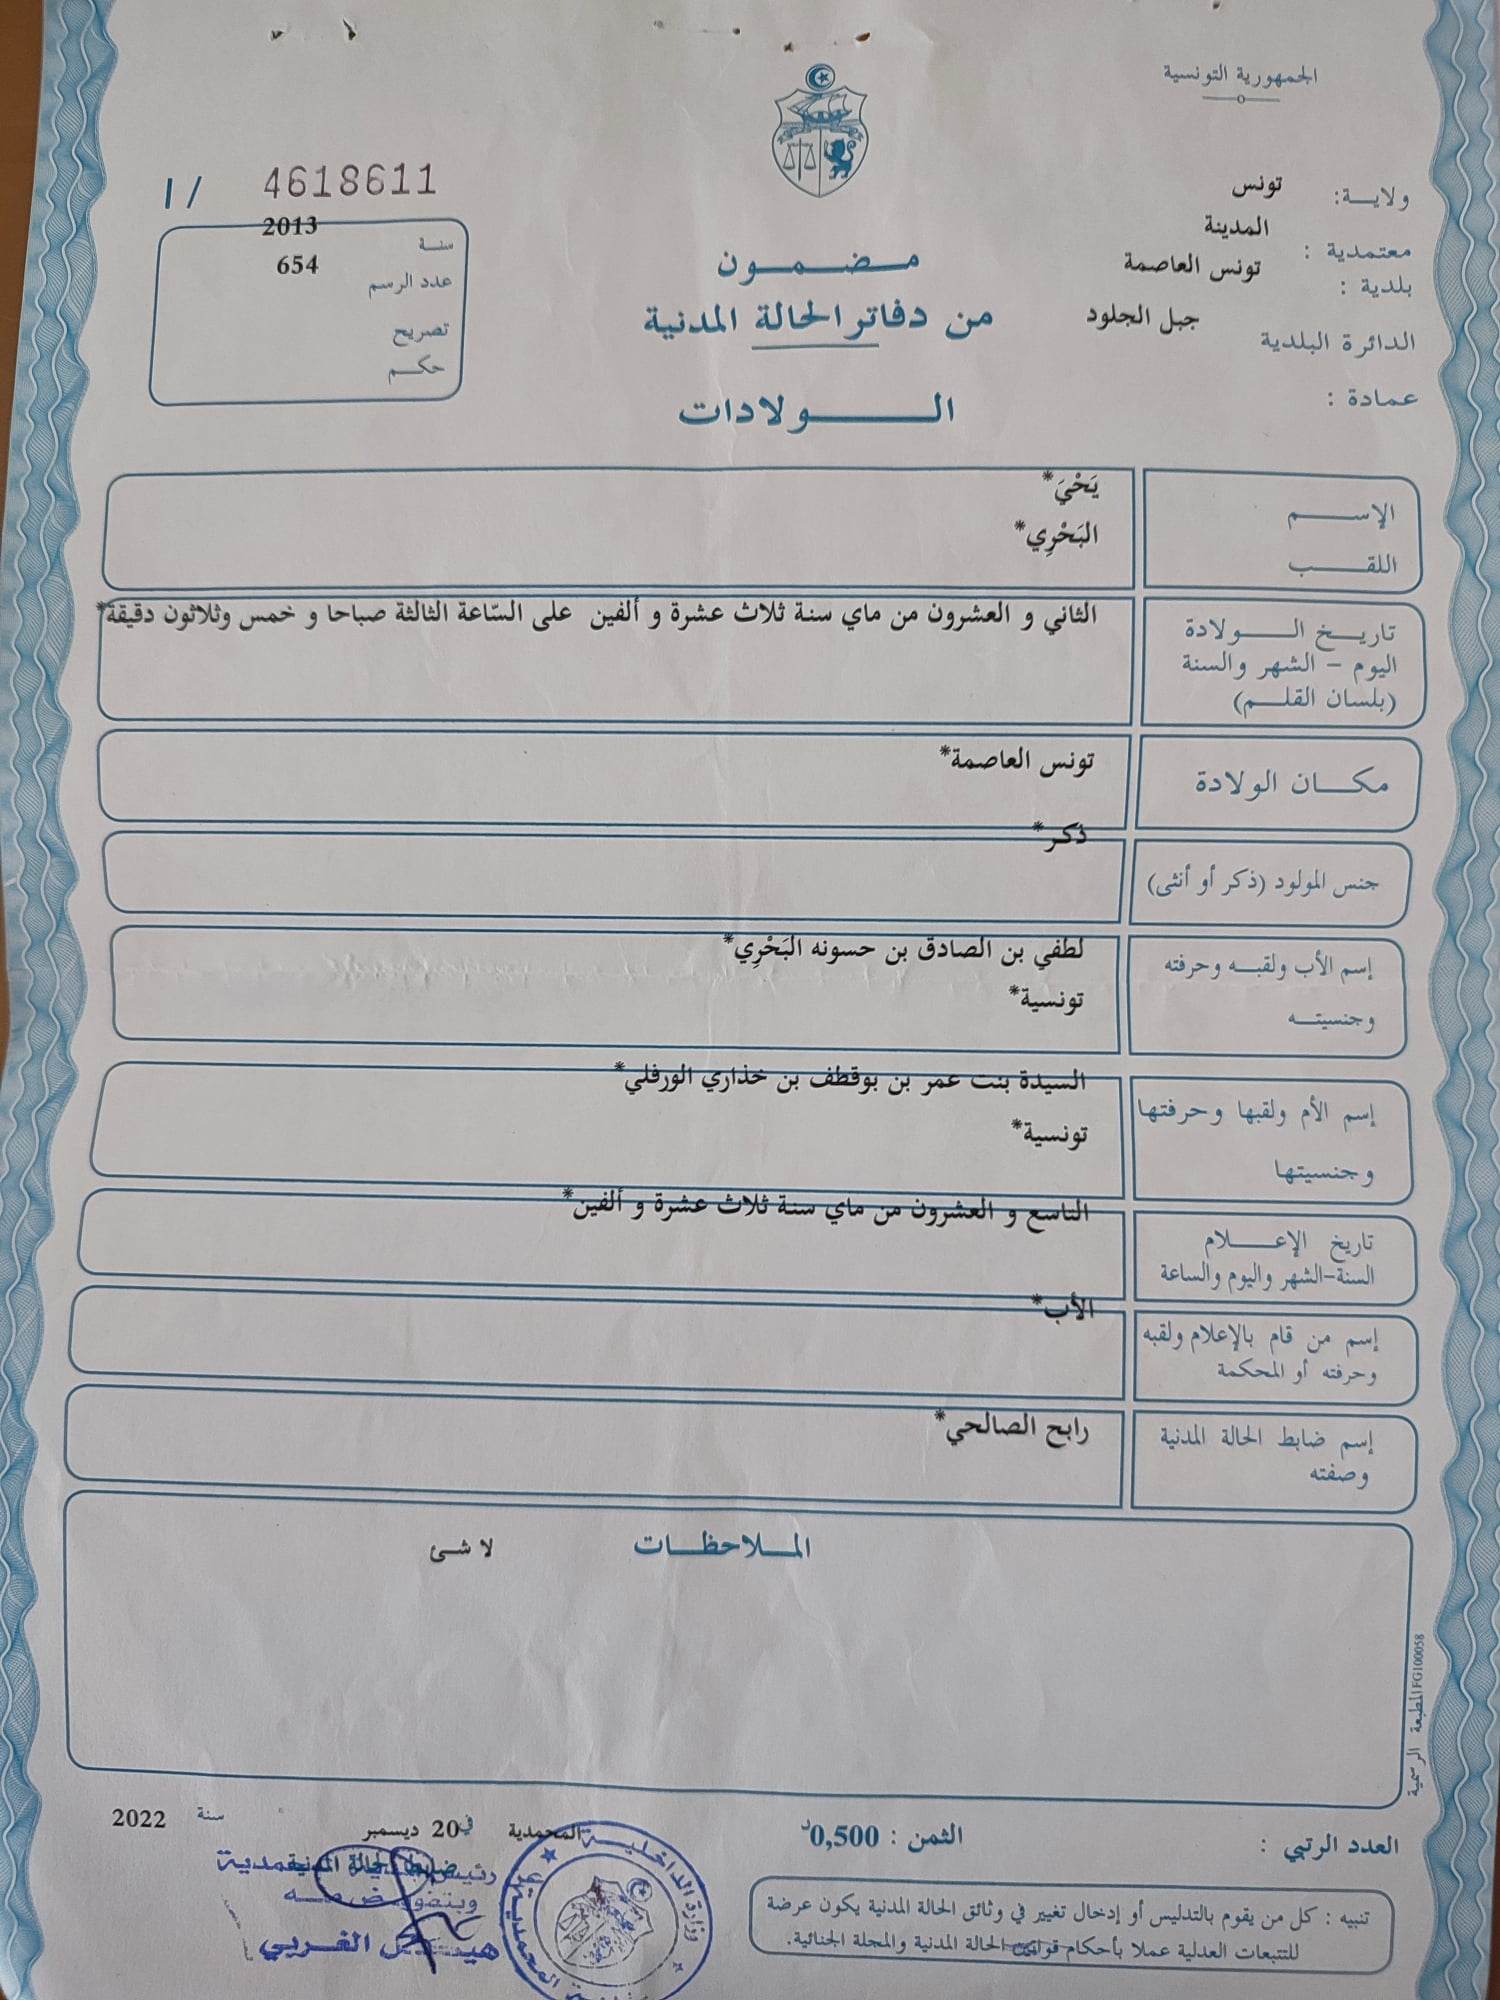 الجمهورية التونسية
ولايـــة: تونس
معتمدية : المدينة
بلدية : تونس العاصمة
الدائرة البلدية جبل الجلود
عمادة :
I / 4618611
سنــة 2013
عدد الرسم 654
تصريح
حكــم
مـــضـــمـــون
من دفاتر الحالة المدنية
الـــــولادات
الإســـــم يَحْيَ*
اللقـــــب البَحْرِي*
تاريــخ الـــــولادة الثاني و العشرون من ماي سنة ثلاث عشرة و ألفين على السّاعة الثالثة صباحا و خمس وثلاثون دقيقة*
اليوم – الشهر والسنة
(بلسان القلــم)
مكـــان الولادة تونس العاصمة*
جنس المولود (ذكر أو أنثى) ذكر*
إسم الأب ولقبــه وحرفته لطفي بن الصادق بن حسونه البَحْرِي*
وجنسيتــه تونسية*
إسم الأم ولقبها وحرفتها السيدة بنت عمر بن بوقطف بن خذاري الورفلي*
وجنسيتها تونسية*
تاريخ الإعـــلام التاسع و العشرون من ماي سنة ثلاث عشرة و ألفين*
السنة-الشهر واليوم والساعة
إسم من قام بالإعلام ولقبه الأب*
وحرفته أو المحكمة
إسم ضابط الحالة المدنية رابح الصالحي*
وصفته
المـــلاحظـــات لا شئ
المطبعة الرسمية FG100058
المحمدية في 20 ديسمبر سنة 2022
ضابط الحالة المدنية
العدد الرتبي :
الثمن : 0,500د
تنبيه : كل من يقوم بالتدليس أو إدخال تغيير في وثائق الحالة المدنية يكون عرضة
للتتبعات العدلية عملا بأحكام قوانين الحالة المدنية والمجلة الجنائية.
وزارة الداخليـــة
الغـــربي